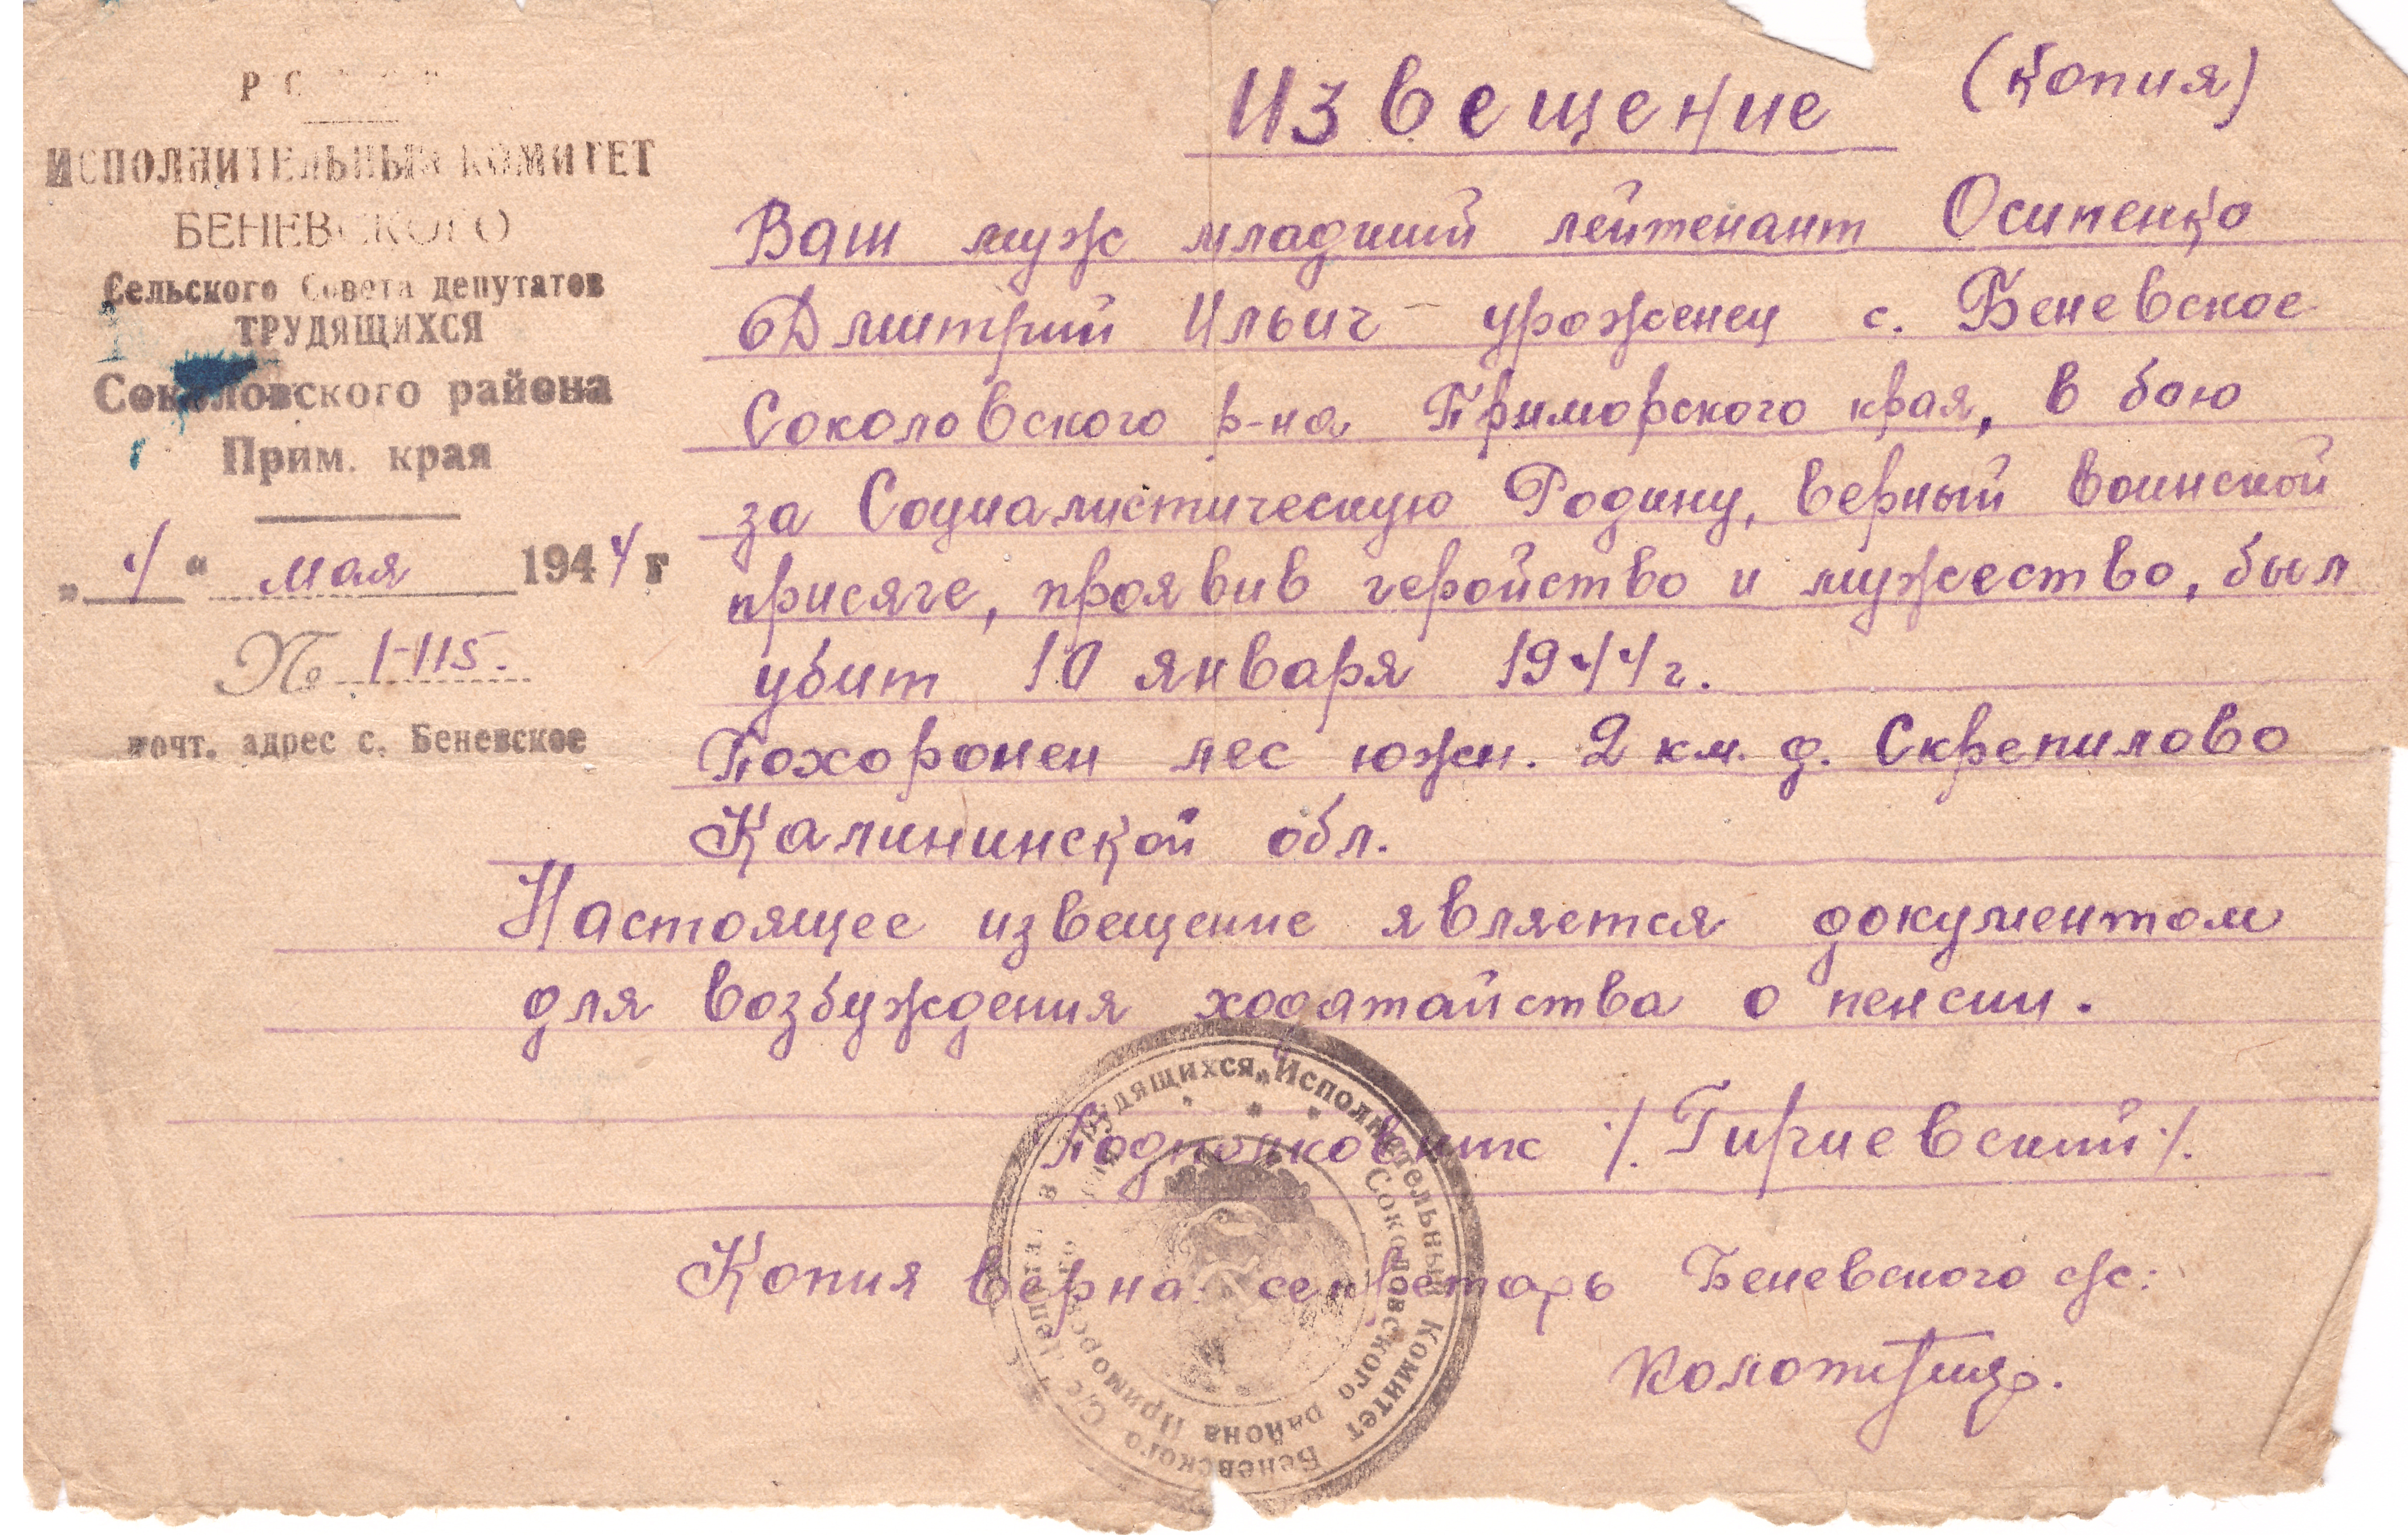 ИСПОЛНИТЕЛЬНЫЙ КОМИТЕТ
БЕНЕВСКОГО
Сельского Совета депутатов
ТРУДЯЩИХСЯ
Соколовского района
Прим. края
„4“ мая 1944 г
№ 1-115.
почт. адрес с. Беневское
Извещение (Копия)
Ваш муж младший лейтенант Осипенко
Дмитрий Ильич – уроженец с. Беневское
Соколовского р-на Приморского края, в бою
за Социалистическую Родину, верный воинской
присяге, проявив геройство и мужество, был
убит 10 января 1944 г.
Похоронен лес южн. 2 км. д. Скрепилово
Калининской обл.
Настоящее извещение является документом
для возбуждения ходатайства о пенсии.
Подполковник /. Гиргиевский /.
Копия верна: секретарь Беневского с/с:
Исполнительный Комитет Беневского С/С Депутатов Трудящихся
Соколовского района Приморского края